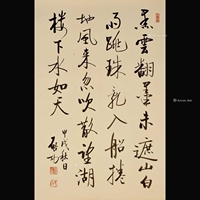 黑雲翻墨未遮山白
雨跳珠乱入船捲
地風来忽吹散望湖
樓下水如天
甲戌秋日
啟功